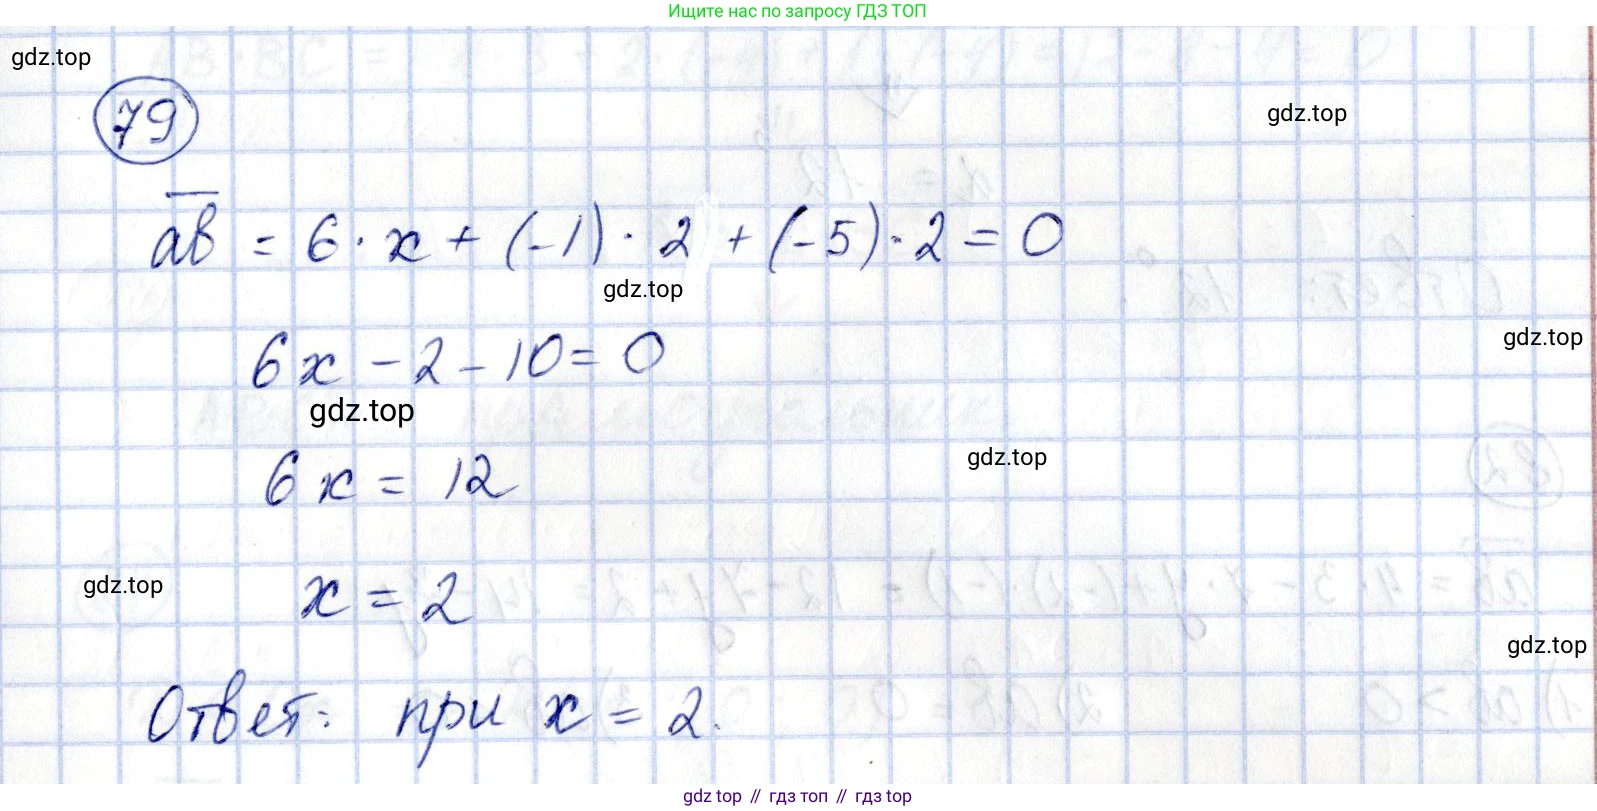 Ищите нас по запросу ГДЗ ТОП
gdz.top
gdz.top
79
ab = 6 · x + (-1) · 2 + (-5) · 2 = 0
gdz.top
gdz.top
6x - 2 - 10 = 0
gdz.top
gdz.top
6x = 12
gdz.top
x = 2
gdz.top
Ответ: при x = 2.
gdz.top // гдз топ // gdz.top